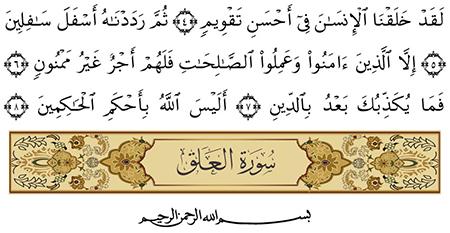 لَقَدْ خَلَقْنَا ٱلْإِنسَـٰنَ فِىٓ أَحْسَنِ تَقْوِيمٍ ﴿٤﴾ ثُمَّ رَدَدْنَـٰهُ أَسْفَلَ سَـٰفِلِينَ
﴿٥﴾ إِلَّا ٱلَّذِينَ ءَامَنُوا۟ وَعَمِلُوا۟ ٱلصَّـٰلِحَـٰتِ فَلَهُمْ أَجْرٌ غَيْرُ مَمْنُونٍ ﴿٦﴾
فَمَا يُكَذِّبُكَ بَعْدُ بِٱلدِّينِ ﴿٧﴾ أَلَيْسَ ٱللَّهُ بِأَحْكَمِ ٱلْحَـٰكِمِينَ ﴿٨﴾
سُورَةُ العَلَق
بسم الله الرحمن الرحيم